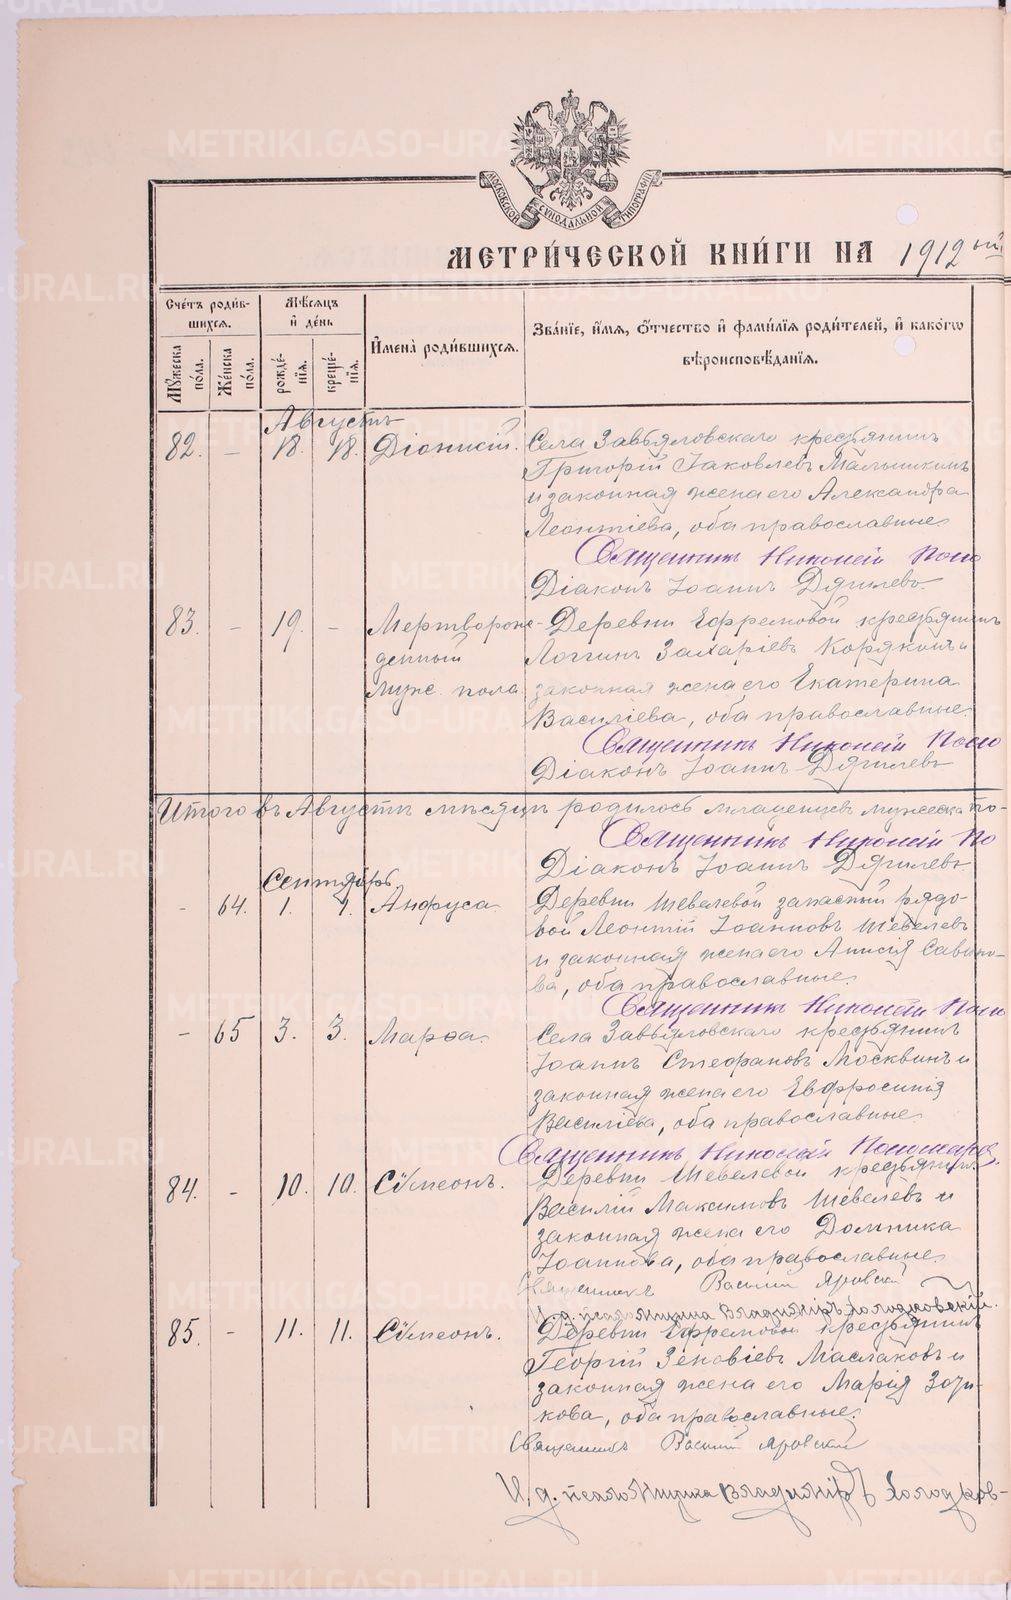 МОСКОВСКОЙ СѴНОДАЛЬНОЙ ТИПОГРАФІИ
МЕТРИ́ЧЕСКОЙ КНИ́ГИ НА 1912ый
Сче́тъ роди́в-
шихся.
Мѣ́сяцъ
и҆ де́нь
И҆мена̀ роди́вшихся.
Зва́нїе, и҆́мѧ, ѻ҆́тчество и҆ фами́лїѧ роди́телей, и҆ како́гѡ
вѣроисповѣ́данїѧ.
Мꙋ́жеска по́ла.
Же́нска по́ла.
рожде́-
нїѧ.
креще́-
нїѧ.
Августъ
82. – 18. 18. Діонисій. Села Завьяловскаго крестьянинъ
Григорій Іаковлевъ Малышкинъ
и законная жена его Александра
Леонтіева, оба православные.
Священникъ Николай Поно
Діаконъ Іоаннъ Дягилевъ
83. – 19. – Мертворож- Деревни Ефремовой крестьянинъ
денный Логгинъ Захаріевъ Корякинъ и
муж. пола законная жена его Екатерина
Василіева, оба православные.
Священникъ Николай Поно
Діаконъ Іоаннъ Дягилевъ
Итого въ Августѣ мѣсяцѣ родилось младенцевъ мужеска по-
Священникъ Николай По
Діаконъ Іоаннъ Дягилевъ
Сентябрь
– 64. 1. 1. Анфуса. Деревни Шевелевой запасный рядо-
вой Леонтій Іоанновъ Шевелевъ
и законная жена его Анисія Савино-
ва, оба православные.
Священникъ Николай Поно
– 65 3. 3. Марѳа. Села Завьяловскаго крестьянинъ
Іоаннъ Стефановъ Москвинъ и
законная жена его Евфросинія
Василіева, оба православные.
Священникъ Николай Пономарев
84. – 10. 10. Сѵмеонъ. Деревни Шевелевой крестьянинъ
Василій Максимовъ Шевелевъ и
законная жена его Домника
Іоаннова, оба православные.
Священникъ Василій Яровскій
И. д. псаломщика Владиміръ Холодковскій.
85. – 11. 11. Сѵмеонъ. Деревни Ефремовой крестьянинъ
Георгій Зеновіевъ Маслаковъ и
законная жена его Марія Зоти-
кова, оба православные.
Священникъ Василій Яровскій
И. д. псаломщика Владиміръ Холодков-
METRIKI.GASO-URAL.RU